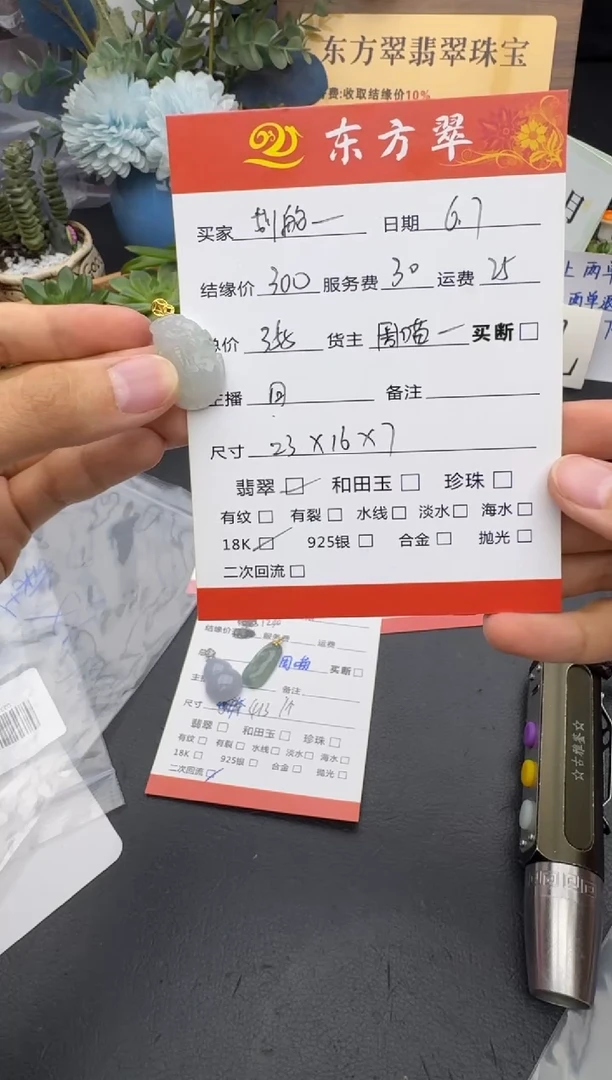 东方翠翡翠珠宝
费:收取结缘价10%
东方翠
买家 刘 一 日期 6.7
结缘价 300 服务费 30 运费 25
总价 355 货主 周喵一 买断 □
主播 备注
尺寸 23×16×7
翡翠 □ 和田玉 □ 珍珠 □
有纹 □ 有裂 □ 水线 □ 淡水 □ 海水 □
18K □ 925银 □ 合金 □ 抛光 □
二次回流 □
上两单
两单
结缘价 服务费 运费
周喵 买断 □
主播 备注
尺寸
翡翠 □ 和田玉 □ 珍珠 □
有纹 □ 有裂 □ 水线 □ 淡水 □ 海水 □
18K □ 925银 □ 合金 □ 抛光 □
二次回流 □